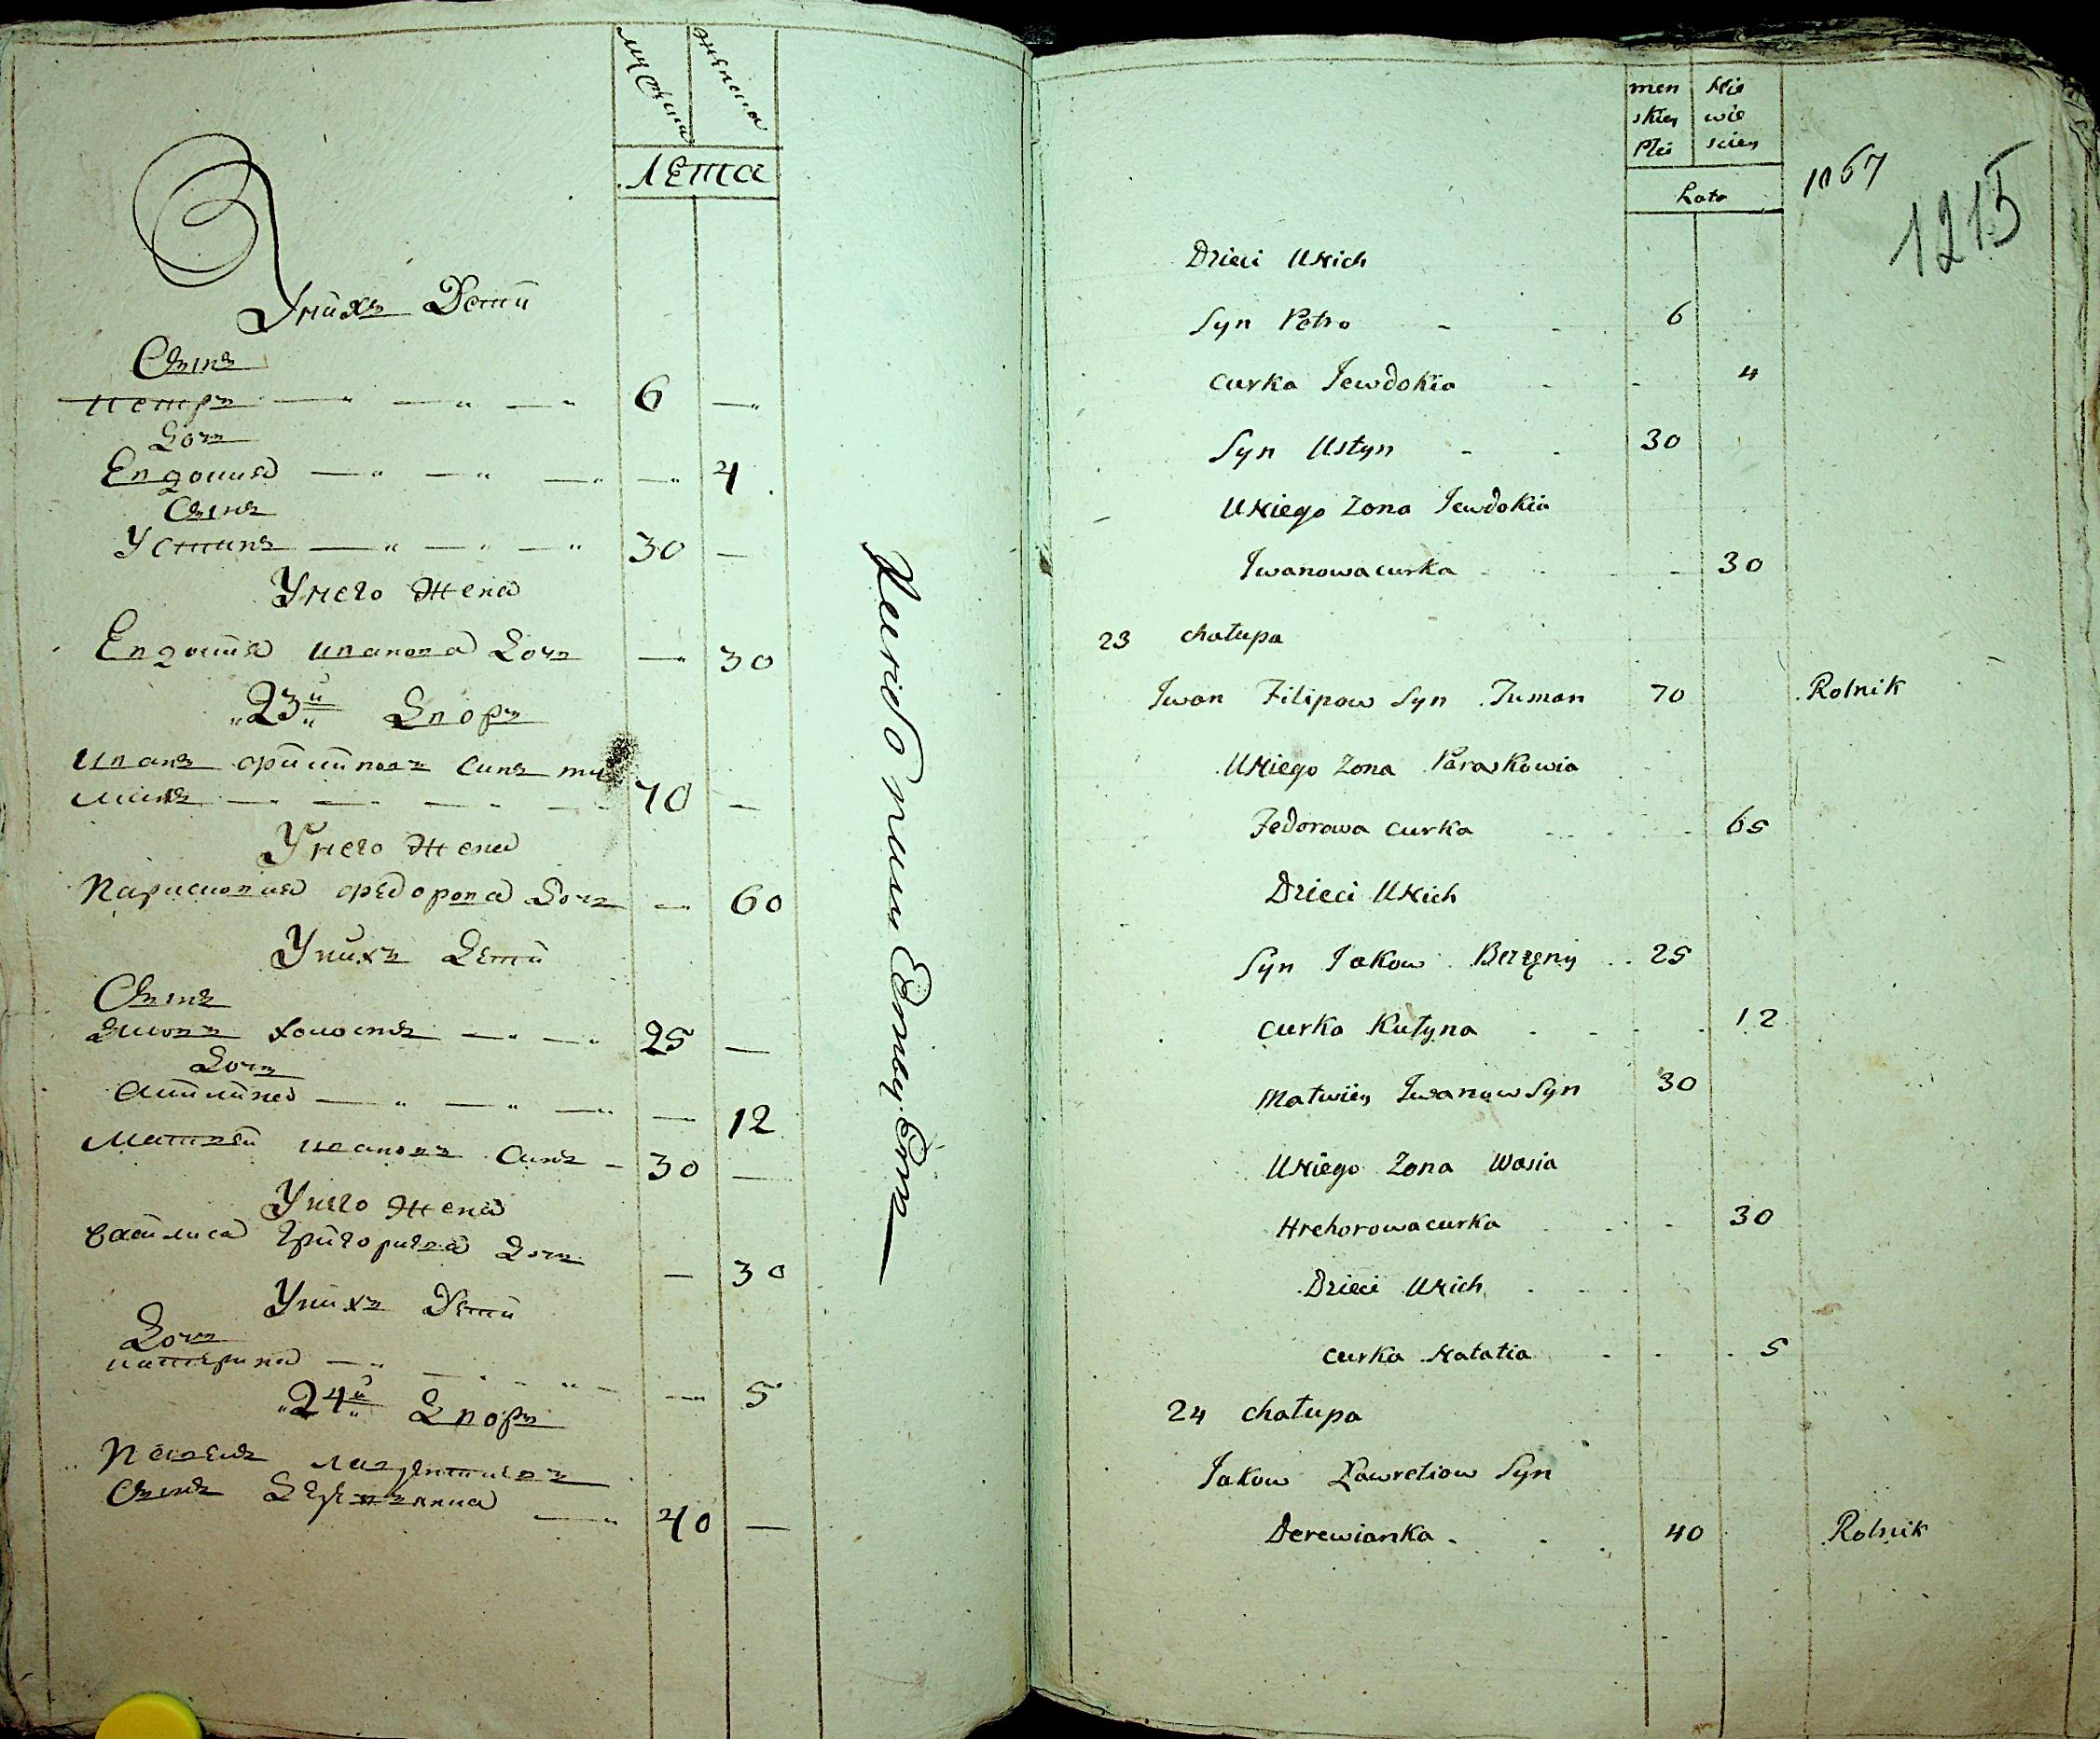 мущина
женска
Лета
Уних Дети
Сын
Петр 6
Доч
Евдокия 4
Сын
Устин 30
Унего жена
Евдокия иванова Доч 30
23й Двор
Иван филипов син ту
ман 70
Унего жена
Парасковия федорова Доч 60
Уних Дети
Сын
Яков 25
Доч
12
Матвей иванов син 30
Унего жена
Василиса григориева Доч 30
Уних Дети
Доч
катерина 5
24й Двор
Сын Деревянка 40
men Nie
skiey wie
Płci sciey
Lata
1067
1215
Dzieci UNich
Syn Petro 6
Curka Jewdokia 4
Syn Ustyn 30
UNiego Zona Jewdokia
Iwanowa curka 30
23 chałupa
Iwan Filipow Syn Tuman 70 Rolnik
UNiego Zona Paraskowia
Fedorowa curka 65
Dzieci UNich
Syn Jakow 25
Curka 12
Matwiey Iwanow Syn 30
UNiego Zona Wasia
Hrehorowa curka 30
Dzieci UNich
curka Natalia 5
24 chałupa
Jakow Ławretiow Syn
Derewianka 40 Rolnik